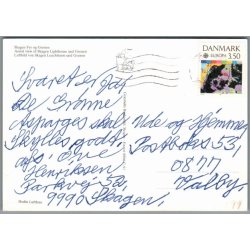 Skagen Fyr og Grenen
Aerial view of Skagen Lighthouse and Grenen
Luftbild von Skagen Leuchtturm und Grenen
DANMARK
EUROPA 3.50
Svaret er på
De Grønne
Asparges skal
Skylles godt,
Henriksen
Parkvej
9990 Skagen.
Ude og Hjemme
Postboks 53,
Valby